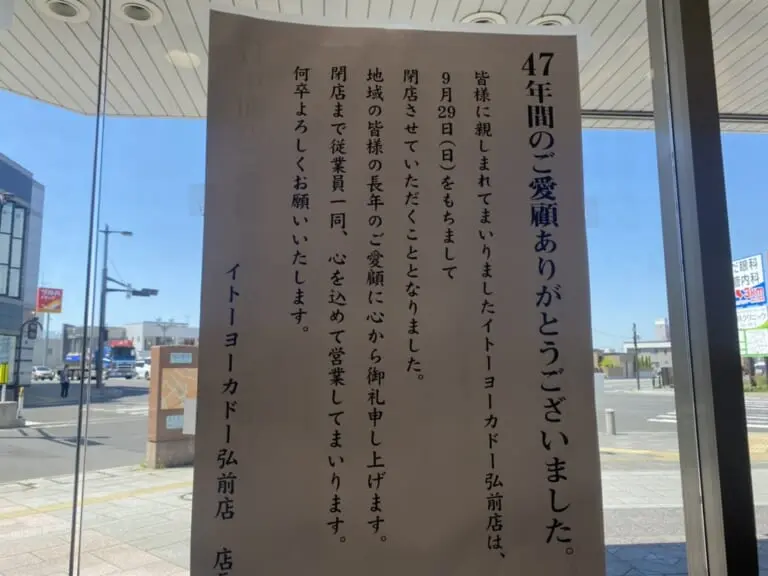 47年間のご愛顧ありがとうございました。
皆様に親しまれてまいりましたイトーヨーカドー弘前店は、
9月29日(日)をもちまして
閉店させていただくこととなりました。
地域の皆様の長年のご愛顧に心から御礼申し上げます。
閉店まで従業員一同、心を込めて営業してまいります。
何卒よろしくお願いいたします。
イトーヨーカドー弘前店 店
ツルハ
眼科
内科